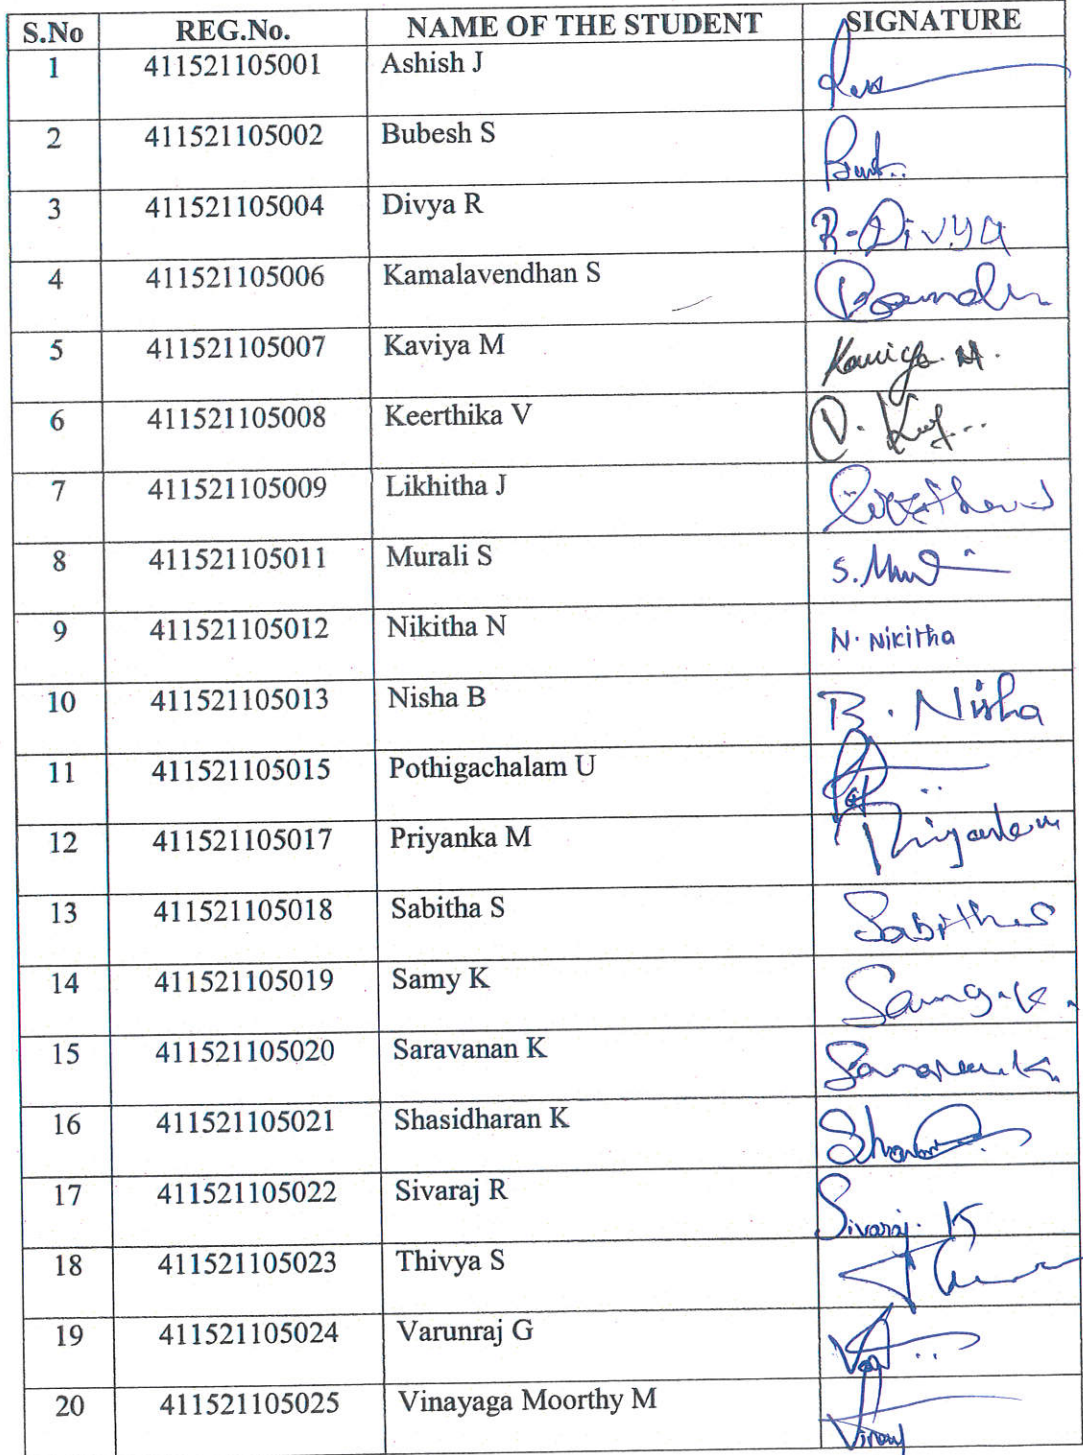 S.No REG.No. NAME OF THE STUDENT SIGNATURE
1 411521105001 Ashish J
2 411521105002 Bubesh S
3 411521105004 Divya R R. Divya
4 411521105006 Kamalavendhan S
5 411521105007 Kaviya M Kaviya. M.
6 411521105008 Keerthika V
7 411521105009 Likhitha J
8 411521105011 Murali S
9 411521105012 Nikitha N N. Nikitha
10 411521105013 Nisha B B. Nisha
11 411521105015 Pothigachalam U
12 411521105017 Priyanka M
13 411521105018 Sabitha S
14 411521105019 Samy K
15 411521105020 Saravanan K
16 411521105021 Shasidharan K
17 411521105022 Sivaraj R Sivaraj. K
18 411521105023 Thivya S
19 411521105024 Varunraj G
20 411521105025 Vinayaga Moorthy M